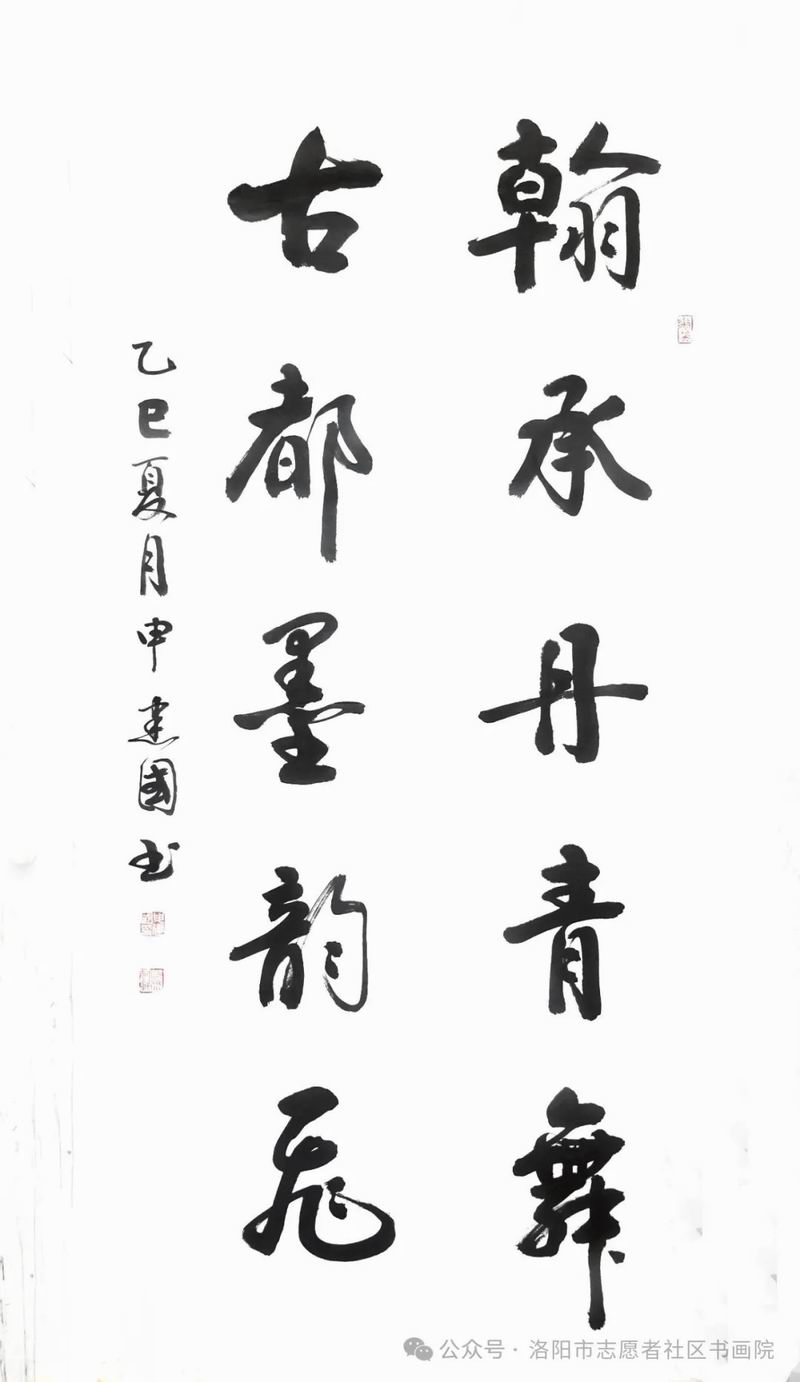 翰承丹青舞
古都墨韵飛
乙巳夏月申建國书
公众号·洛阳市志愿者社区书画院